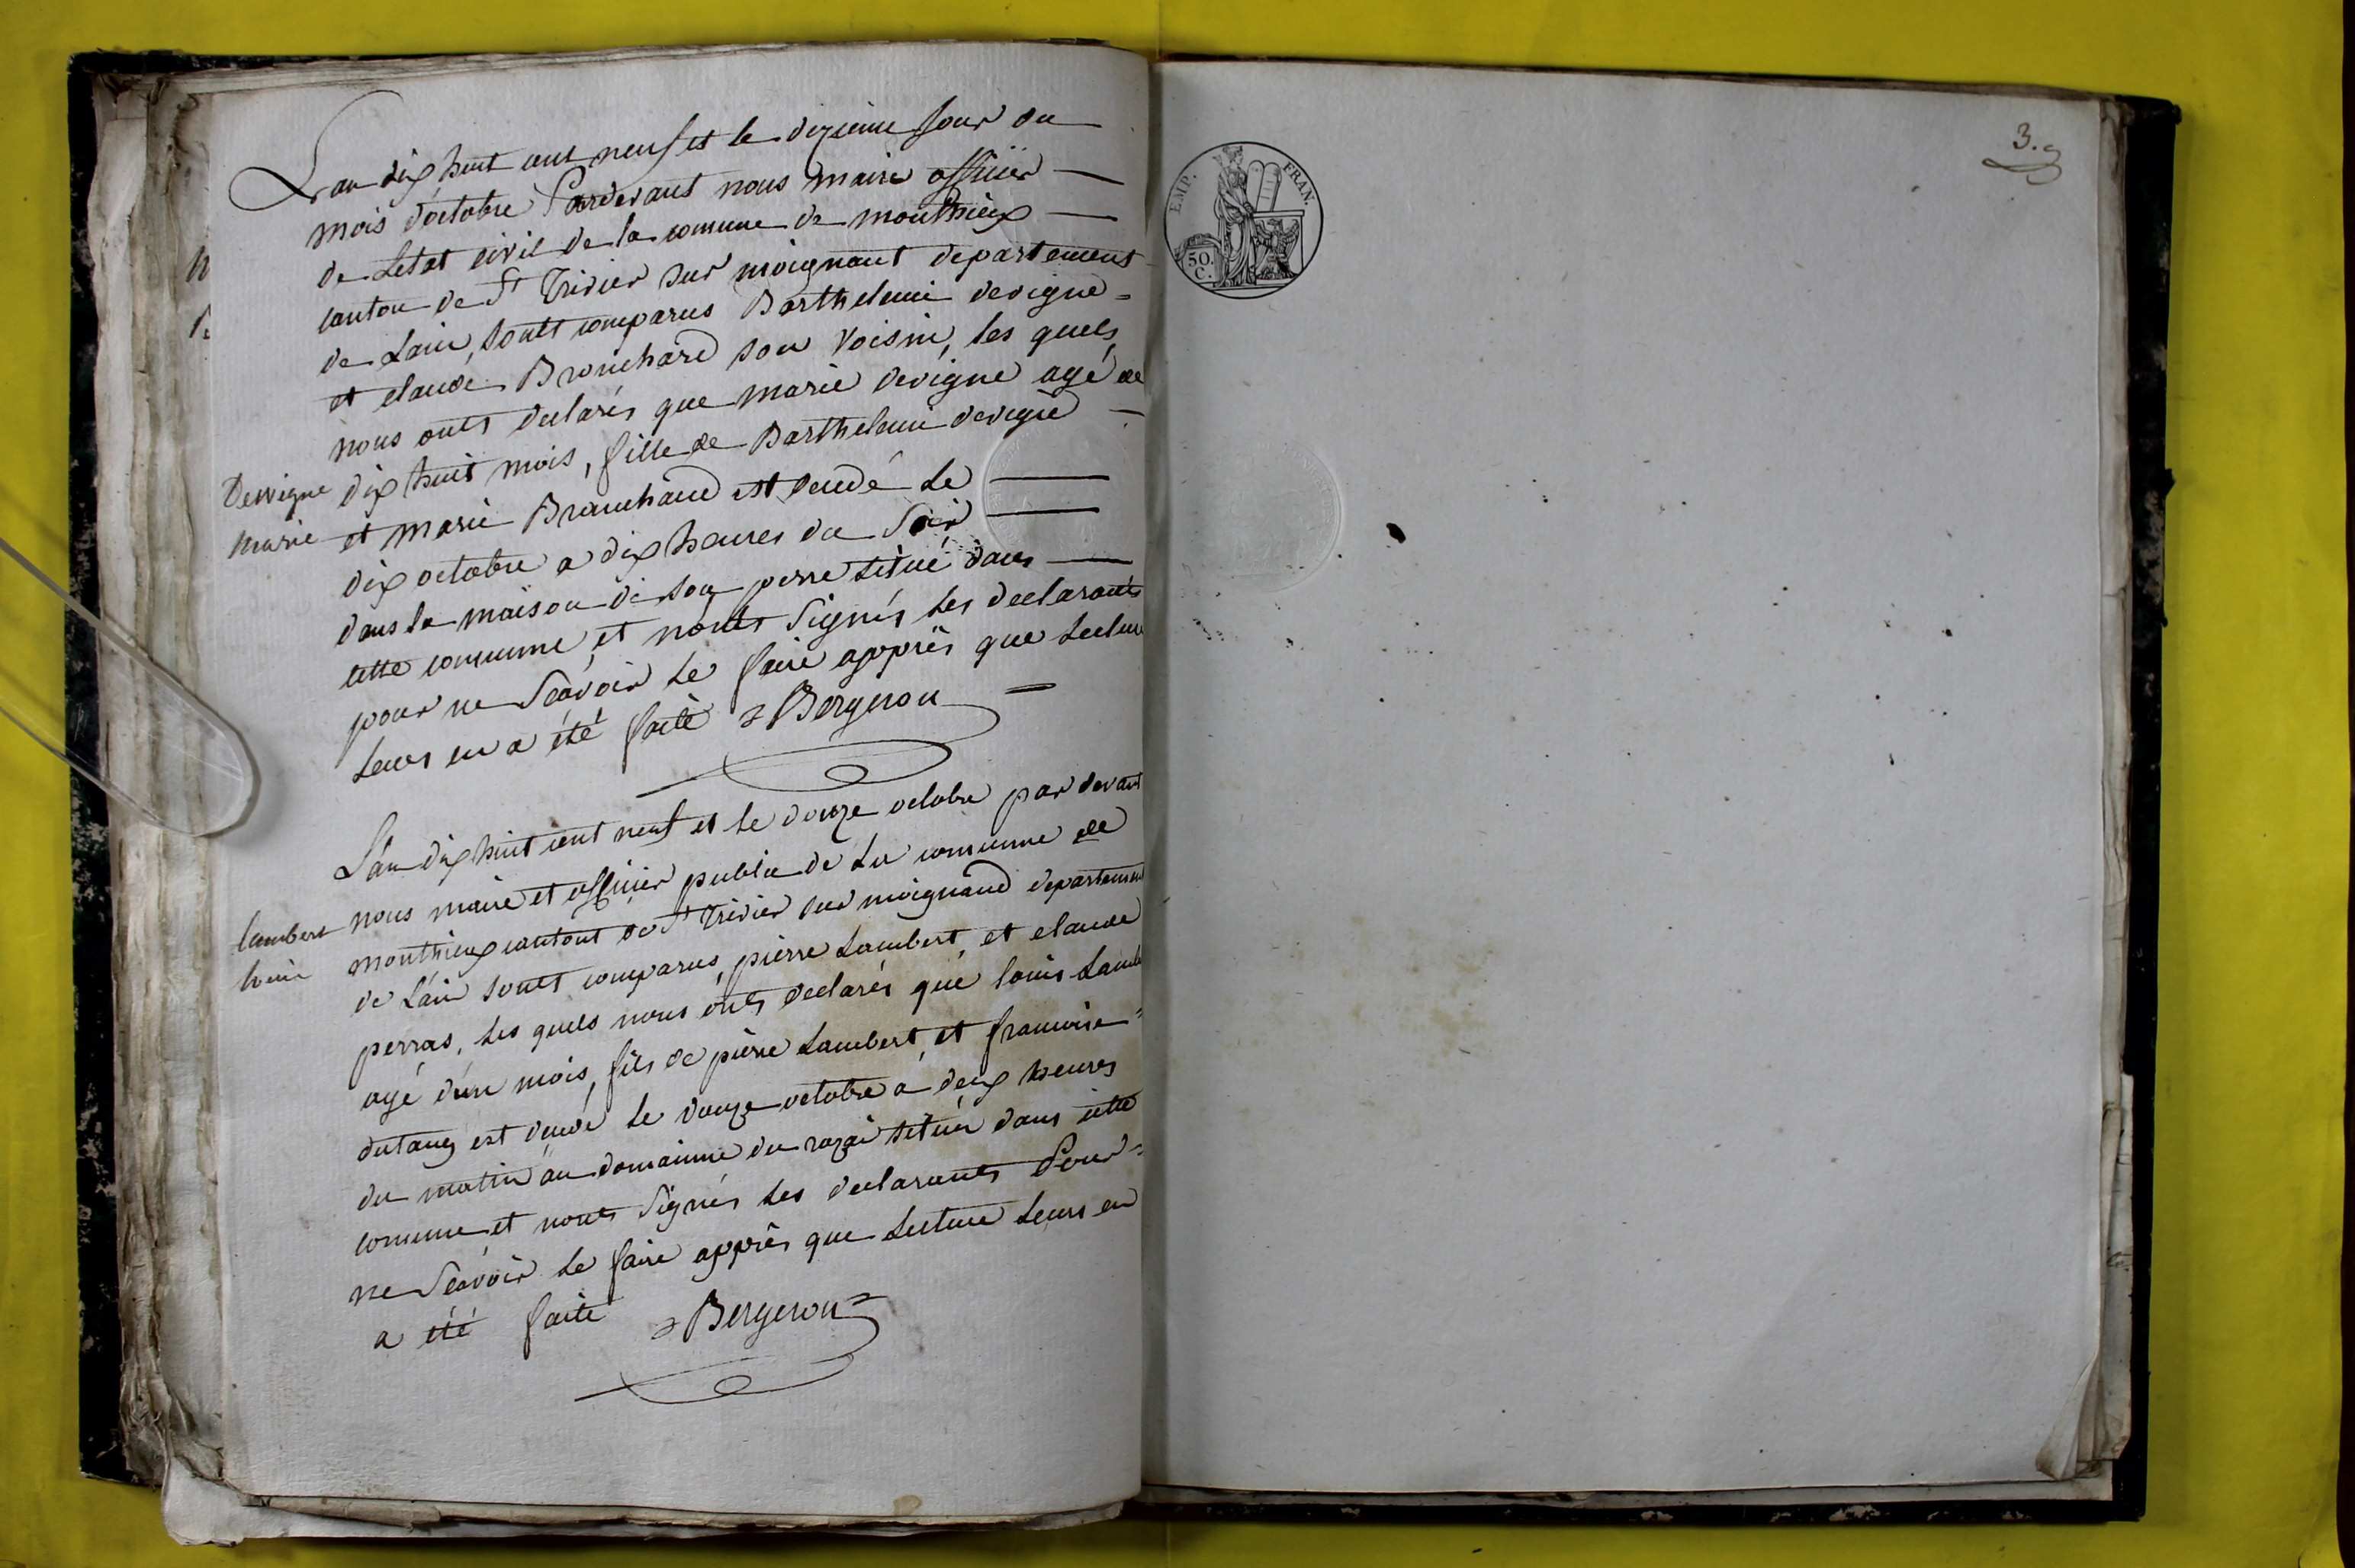 L'an dix huit cent neuf et le dizieme Jour du
mois d'octobre Pardevant nous maire officier
de Letat civil de la comune de monthieux
canton de St Trivier sur moignant departement
de Lain, sonts comparus Barthelemi devigne =
et claude Bronchard son voisin, les quels
nous onts declarés que marie devigne agé de
Devvigne
marie
dix huit mois, fille de Barthelemi devigne
et marie Branchard est décédé Le
dix octobre a dix heures du Soir
dans la maison de son perre situé dans
cette commune, et nonts Signés les declarants
pour ne Scavoir Le faire apprès que Lecture
Leurs en a été faite Bergeron
L'an dix huit cent neuf et le douze octobre par devant
Lambert
louis
nous maire et officier public de La commune de
monthieux cantont de St Trivier sur moignand departement
de L'ain sonts comparus, pierre Lambert, et claude
perras, Les quels nous onts declarés que louis Lamb
agé d'un mois, fils de pierre Lambert, et francoise =
dutang est décédé Le douze octobre a deux heures
du matin au domainne du razai situés dans cette
comune, et nonts Signés Les declarants Pour =
ne Scavoir Le faire apprès que Lecture Leurs en
a été faite Bergeron
3.
EMP. FRAN.
50.
C.